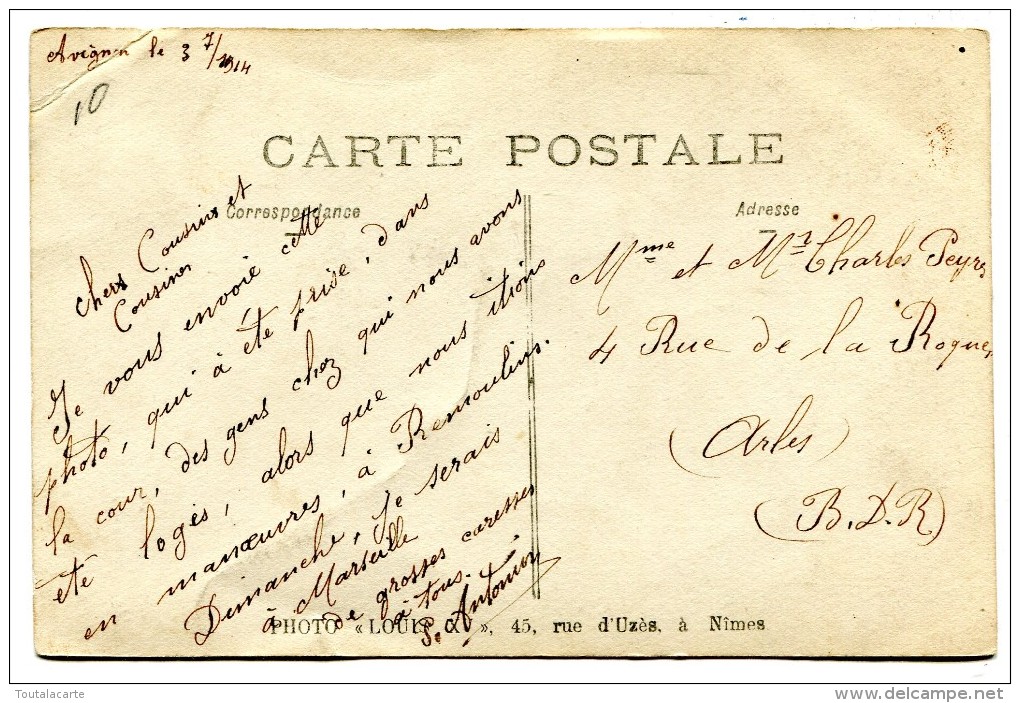 Avignon le 3 7/1914
10
CARTE POSTALE
Correspondance
Adresse
chers Cousins et
Cousines
Je vous envoie cette
photo, qui à été prise, dans
la cour, des gens chez qui nous avons
été logés, alors que nous itions
en manœuvres, à Remoulins.
Dimanche, je serais
à Marseille
de grosses caresses
à tous.
Antonin
Mme et Mr Charles Peyre
4 Rue de la Roque
(Arles)
(B.D.R)
PHOTO « LOUIS XV », 45, rue d'Uzès, à Nîmes
Toutalacarte
www.delcampe.net